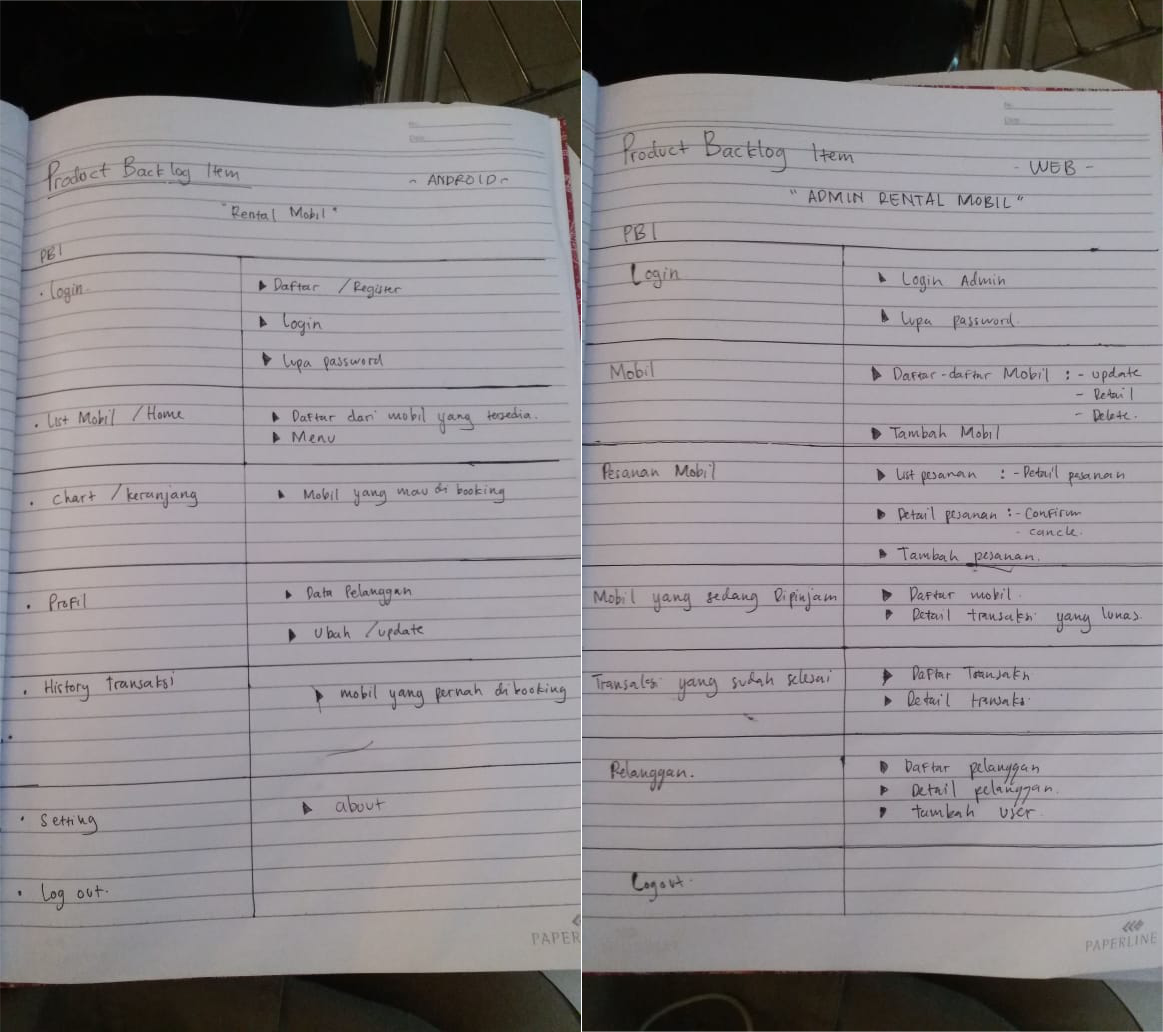 Product Backlog Item
- ANDROID -
"Rental Mobil"
PBI
• Login
▶ Daftar / Register
▶ Login
▶ Lupa password
• List Mobil / Home
▶ Daftar dari mobil yang tersedia.
▶ Menu
• Chart / keranjang
▶ Mobil yang mau di booking
• Profil
▶ Data Pelanggan
▶ Ubah / update
• History transaksi
▶ mobil yang pernah di booking
• Setting
▶ about
• Log out.
PAPER
Product Backlog Item
- WEB -
"ADMIN RENTAL MOBIL"
PBI
Login
▶ Login Admin
▶ Lupa password.
Mobil
▶ Daftar-daftar Mobil : - update
- Detail
- Delete.
▶ Tambah Mobil
Pesanan Mobil
▶ List pesanan : - Detail pesanan
▶ Detail pesanan : - Confirm
- cancle.
▶ Tambah pesanan.
Mobil yang sedang Dipinjam
▶ Daftar mobil.
▶ Detail transaksi yang lunas.
Transaksi yang sudah selesai
▶ Daftar Transaksi
▶ Detail transaksi
Pelanggan.
▶ Daftar pelanggan
▶ Detail pelanggan.
▶ tambah user.
Logout.
PAPERLINE